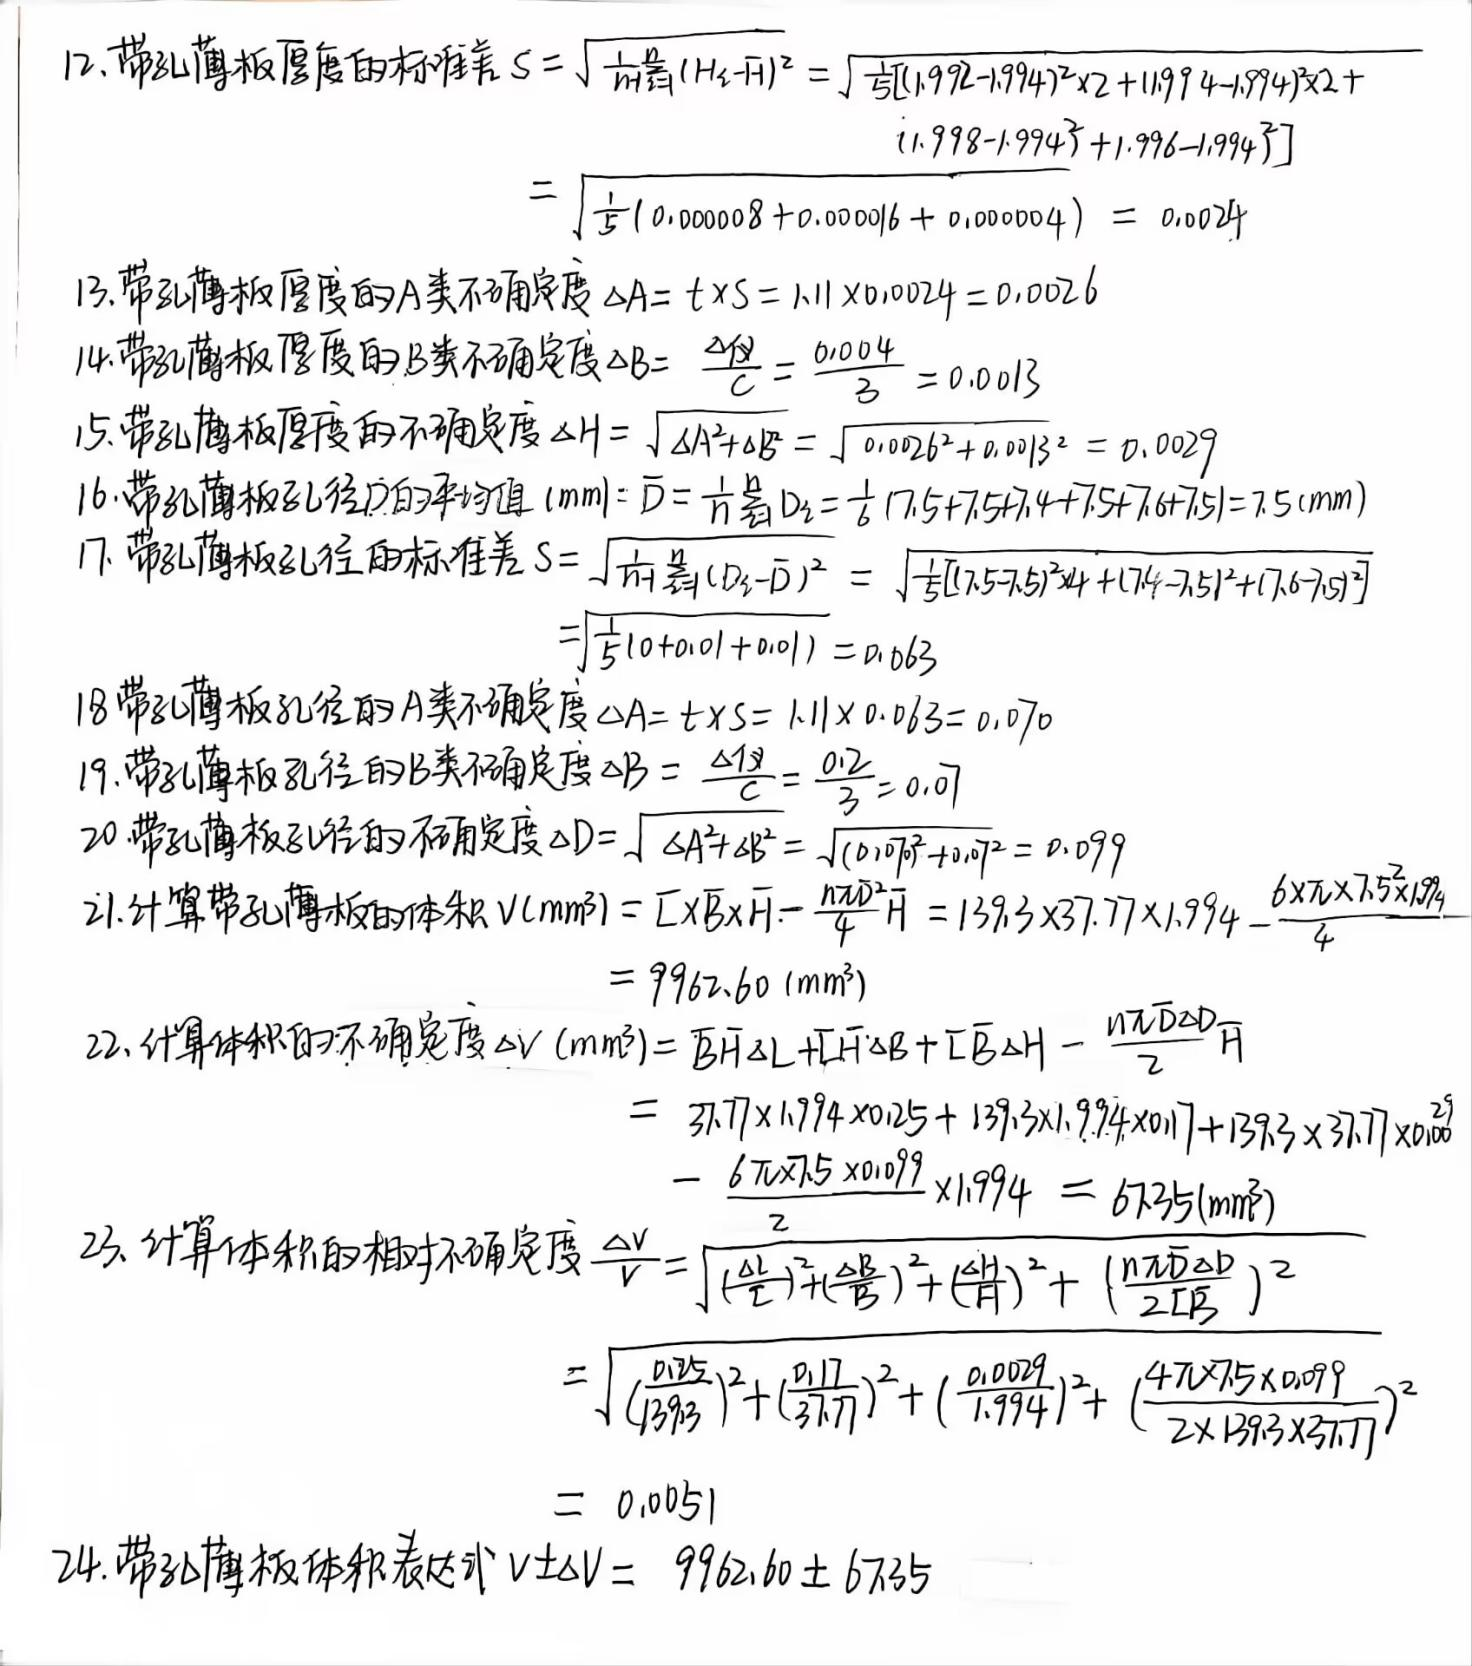 12、带孔薄板厚度的标准差 S = √(1/(n-1) Σ(i=1→n) (Hi-H̄)²) = √(1/5[(1.992-1.994)²×2+(1.994-1.994)²×2+
(1.998-1.994)²+1.996-1.994)²])
= √(1/5(0.000008+0.000016+0.000004)) = 0.0024
13.带孔薄板厚度的A类不确定度 ΔA= t×S=1.11×0.0024=0.0026
14.带孔薄板厚度的B类不确定度ΔB= Δ仪/C = 0.004/3 =0.0013
15.带孔薄板厚度的不确定度 ΔH = √(ΔA²+ΔB²) = √(0.0026²+0.0013²) = 0.0029
16.带孔薄板孔径D的平均值 (mm): D̄ = 1/n Σ(i=1→n) Di = 1/6 (7.5+7.5+7.4+7.5+7.6+7.5)=7.5(mm)
17. 带孔薄板孔径的标准差 S= √(1/(n-1) Σ(i=1→n) (Di-D̄)²) = √(1/5[(7.5-7.5)²×4+(7.4-7.5)²+(7.6-7.5)²])
=√(1/5(0+0.01+0.01)) =0.063
18带孔薄板孔径的A类不确定度ΔA= t×S= 1.11×0.063=0.070
19.带孔薄板孔径的B类不确定度ΔB = Δ仪/C = 0.2/3 =0.07
20.带孔薄板孔径的不确定度ΔD= √(ΔA²+ΔB²) = √((0.070)²+0.07²) = 0.099
21.计算带孔薄板的体积 V(mm³) = L̄×B̄×H̄ - nπD̄²/4 H̄ = 139.3×37.77×1.994 - 6×π×7.5²×1.994/4
= 9962.60 (mm³)
22、计算体积的不确定度ΔV (mm³)= B̄H̄ΔL+L̄H̄ΔB+L̄B̄ΔH - nπD̄ΔD/2 H̄
= 37.77×1.994×0.25+139.3×1.994×0.17+139.3×37.77×0.0029
- 6π×7.5×0.099/2 ×1.994 = 67.35(mm³)
23、计算体积的相对不确定度 ΔV/V = √((ΔL/L̄)²+(ΔB/B̄)²+(ΔH/H̄)²+(nπD̄ΔD/2L̄B̄)²)
= √((0.25/139.3)²+(0.17/37.77)²+(0.0029/1.994)²+(4π×7.5×0.099/2×139.3×37.77)²)
= 0.0051
24.带孔薄板体积表达式 V±ΔV = 9962.60±67.35